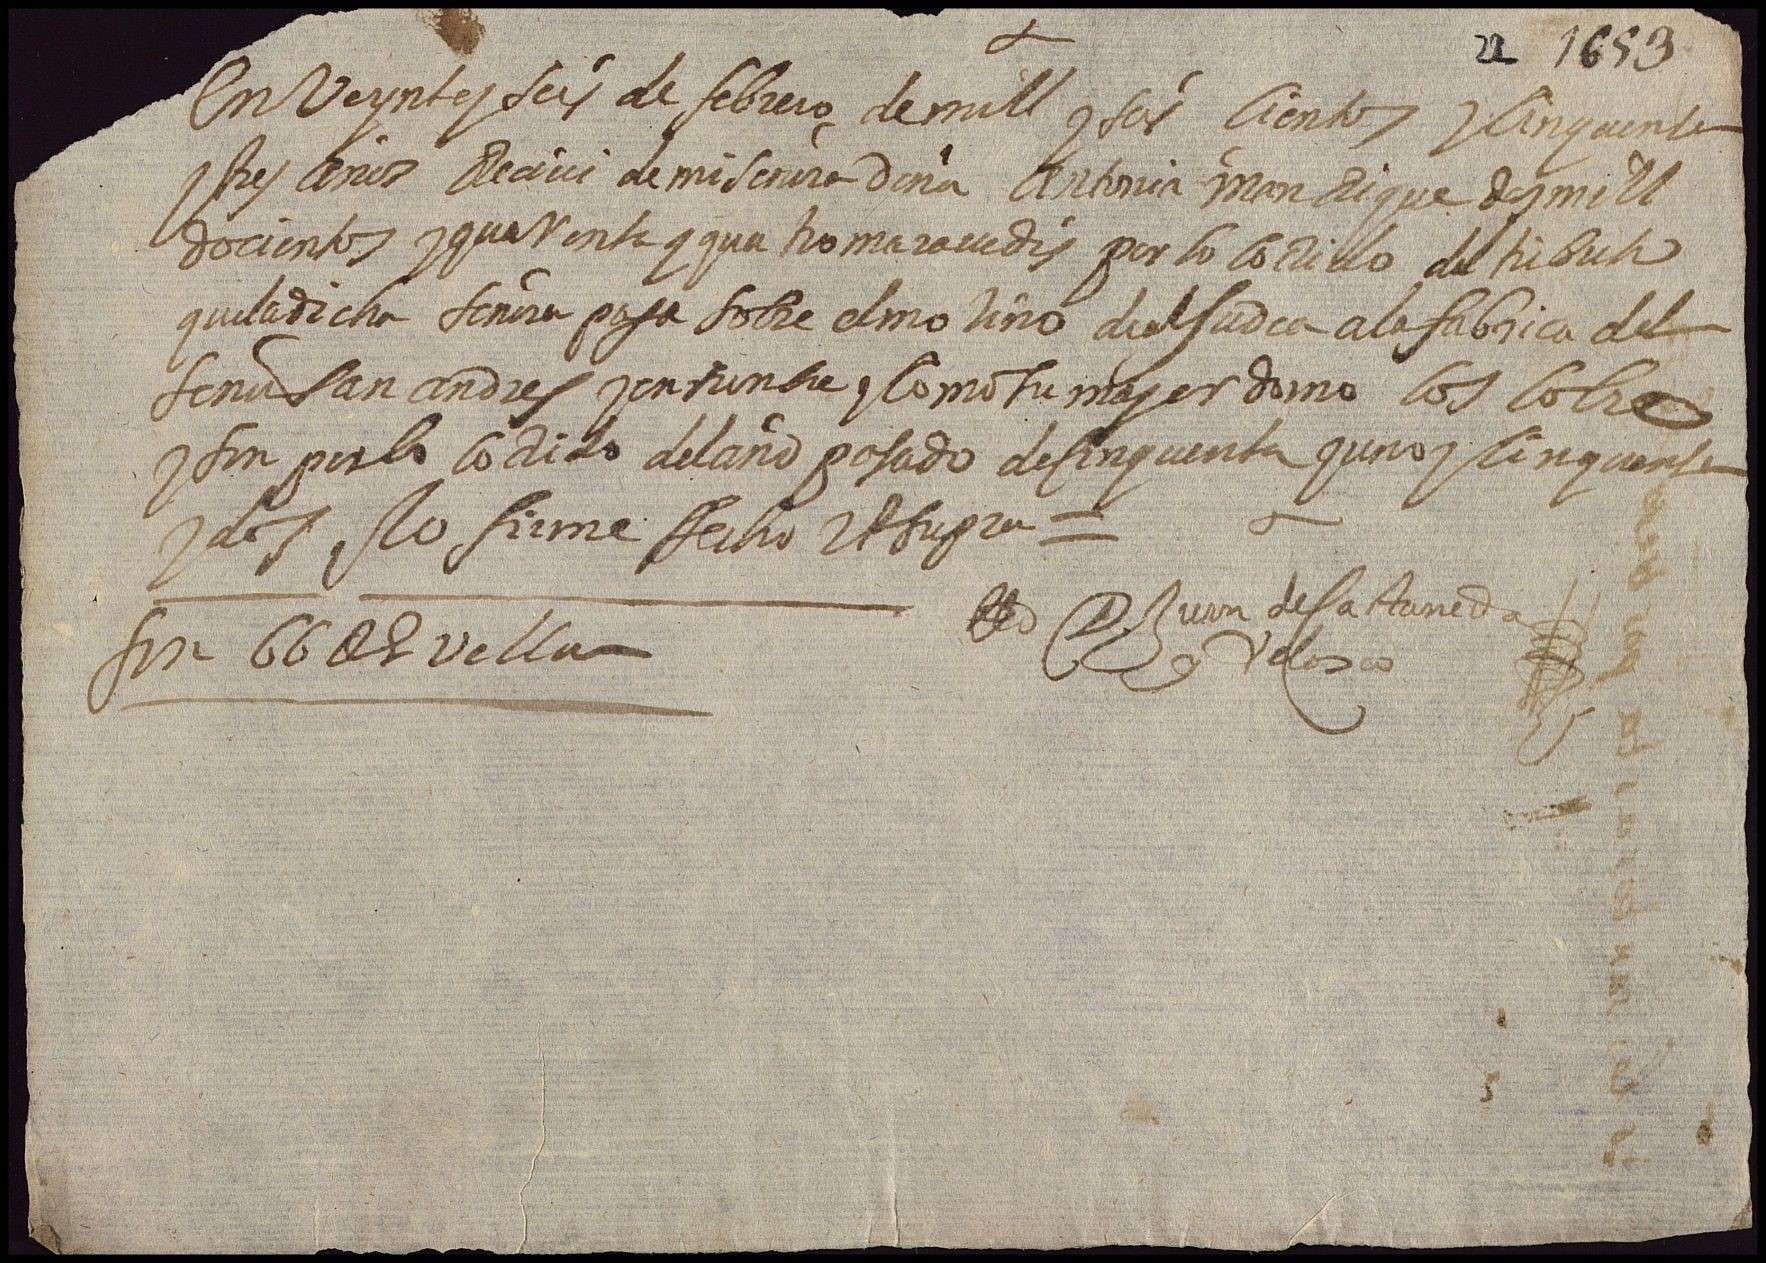 22 1653
En Veynte y seis de febrero de mill y seis cientos y cinquenta
y tres años Recivi de mi señora doña Antonia manRique dos mill
docientos y quarenta y quatro maravedis por lo coRido del tributo
que la dicha señora paga sobre el molino de la a la fabrica del
señor san andres y como su mayordomo los cobre
y son por lo coRido del año pasado de cinquenta y uno y cinquenta
y dos y lo firme fecho Ut supra =
D Juan de Castaneda
y Velasco
son 66 Rs vellon